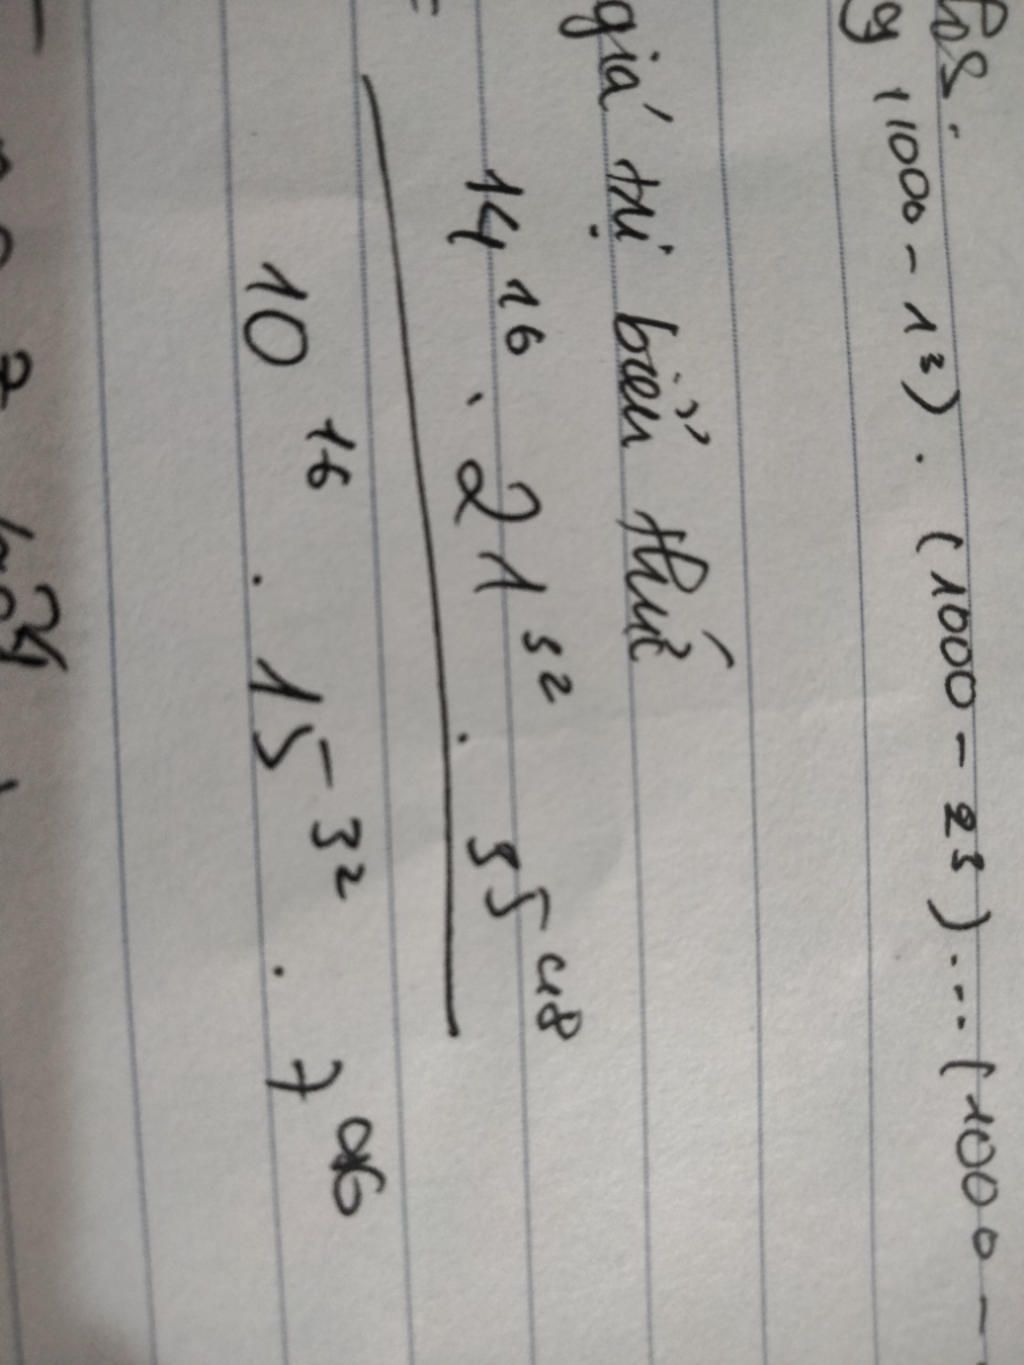 g) (1000 - 1³) . (1000 - 2³) ... (1000 -
giá trị biểu thức
=
14¹⁶ . 21³² . 35⁴⁸
10¹⁶ . 15³² . 7⁹⁶